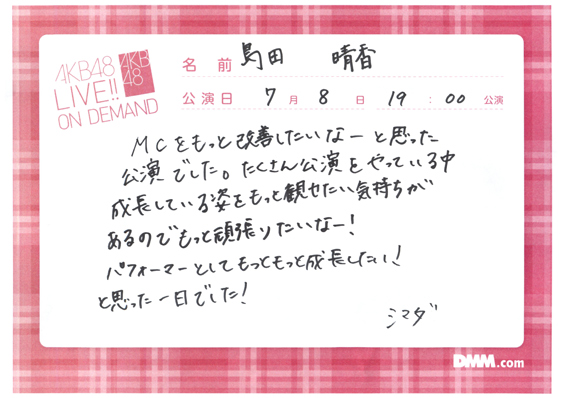 AKB48
LIVE!!
ON DEMAND
AKB
48
名 前 島田 晴香
公演日 7 月 8 日 19 : 00 公演
MCをもっと改善したいなーと思った
公演でした。たくさん公演をやっている中
成長している姿をもっと観せたい気持ちが
あるのでもっと頑張りたいなー!
パフォーマーとしてもっともっと成長したい!
と思った一日でした!
シマダ
DMM.com